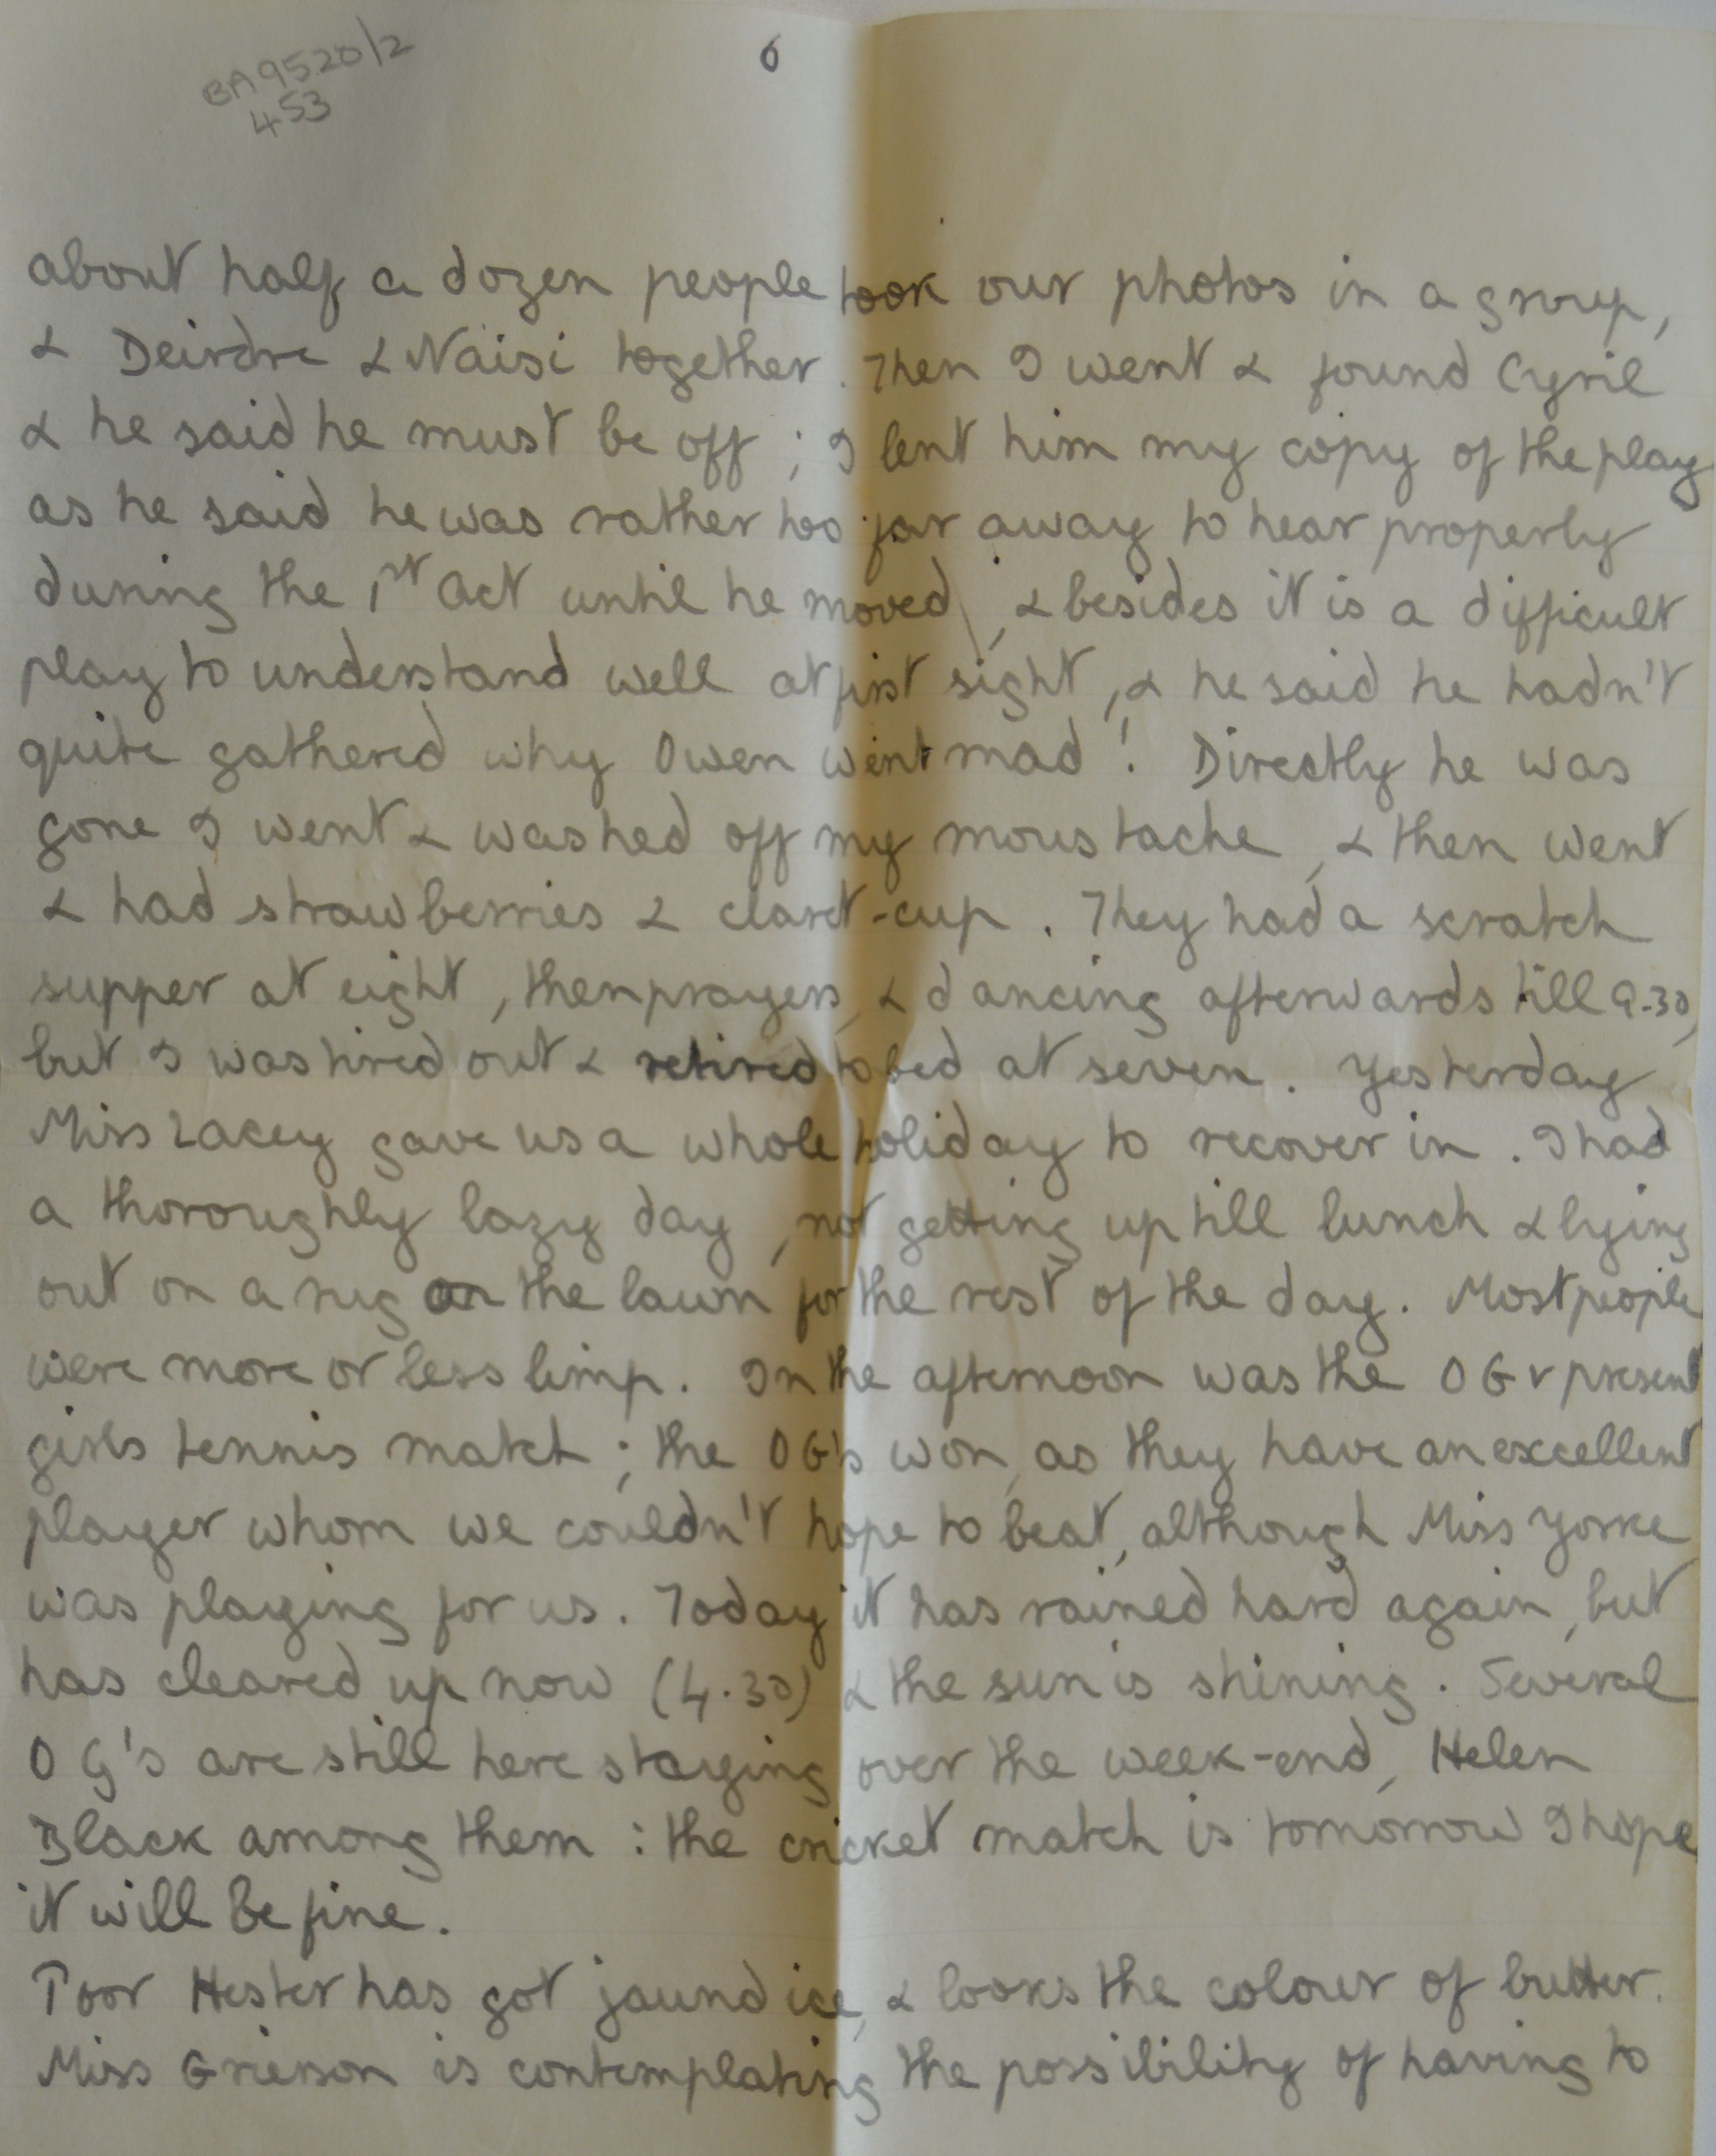 BA9520/2
453
6
about half a dozen people took our photos in a group,
& Deirdre & Naisi together. Then I went & found Cyril
& he said he must be off; I lent him my copy of the play
as he said he was rather too far away to hear properly
during the 1st act until he moved, & besides it is a difficult
play to understand well at first sight, & he said he hadn't
quite gathered why Owen went mad! Directly he was
gone I went & washed off my moustache, & then went
& had strawberries & claret-cup. They had a scratch
supper at eight, then prayers, & dancing afterwards till 9.30,
but I was tired out & retired to bed at seven. Yesterday
Miss Lacey gave us a whole holiday to recover in. I had
a thoroughly lazy day, not getting up till lunch & lying
out on a rug on the lawn for the rest of the day. Most people
were more or less limp. In the afternoon was the OG v present
girls tennis match; the OG's won, as they have an excellent
player whom we couldn't hope to beat, although Miss Yorke
was playing for us. Today it has rained hard again, but
has cleared up now (4.30) & the sun is shining. Several
OG's are still here staying over the week-end, Helen
Black among them: the cricket match is tomorrow I hope
it will be fine.
Poor Hester has got jaundice, & looks the colour of butter.
Miss Grierson is contemplating the possibility of having to